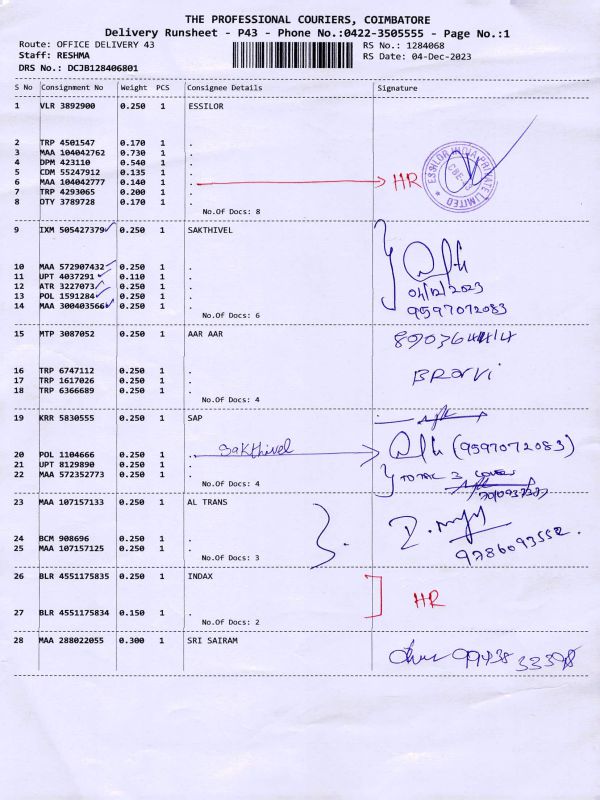 THE PROFESSIONAL COURIERS, COIMBATORE
Delivery Runsheet - P43 - Phone No.:0422-3505555 - Page No.:1
Route: OFFICE DELIVERY 43 RS No.: 1284068
Staff: RESHMA RS Date: 04-Dec-2023
DRS No.: DCJB128406801
S No Consignment No Weight PCS Consignee Details Signature
1 VLR 3892900 0.250 1 ESSILOR
2 TRP 4501547 0.170 1 .
3 MAA 104042762 0.730 1 .
4 DPM 423110 0.540 1 .
5 CDM 55247912 0.135 1 .
6 MAA 104042777 0.140 1 . HR
7 TRP 4293065 0.200 1 .
8 OTY 3789728 0.170 1 .
No.Of Docs: 8
ESSILOR INDIA PRIVATE LIMITED
9 IXM 505427379 0.250 1 SAKTHIVEL
10 MAA 572907432 0.250 1 .
11 UPT 4037291 0.110 1 .
12 ATR 3227073 0.250 1 . 04/12/2023
13 POL 1591284 0.250 1 . 9597072083
14 MAA 300403566 0.250 1 .
No.Of Docs: 6
15 MTP 3087052 0.250 1 AAR AAR
16 TRP 6747112 0.250 1 .
17 TRP 1617026 0.250 1 .
18 TRP 6366689 0.250 1 .
No.Of Docs: 4
19 KRR 5830555 0.250 1 SAP
20 POL 1104666 0.250 1 . Sakthivel (9597072083)
21 UPT 8129890 0.250 1 .
22 MAA 572352773 0.250 1 . TOTAL 3
No.Of Docs: 4
23 MAA 107157133 0.250 1 AL TRANS
24 BCM 908696 0.250 1 .
25 MAA 107157125 0.250 1 . 9786093552.
No.Of Docs: 3
26 BLR 4551175835 0.250 1 INDAX
HR
27 BLR 4551175834 0.150 1 .
No.Of Docs: 2
28 MAA 288022055 0.300 1 SRI SAIRAM